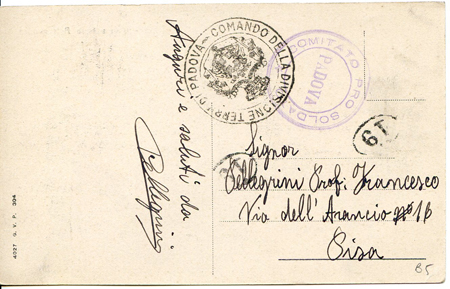 Auguri e saluti da
Pellegrini
COMANDO DELLA DIVISIONE TERR. DI PADOVA
COMITATO PRO SOLDA
PADOVA
19
Signor
Pellegrini Prof. Francesco
Via dell'Arancio n° 16
Pisa
4027 G. V. P. 304
65